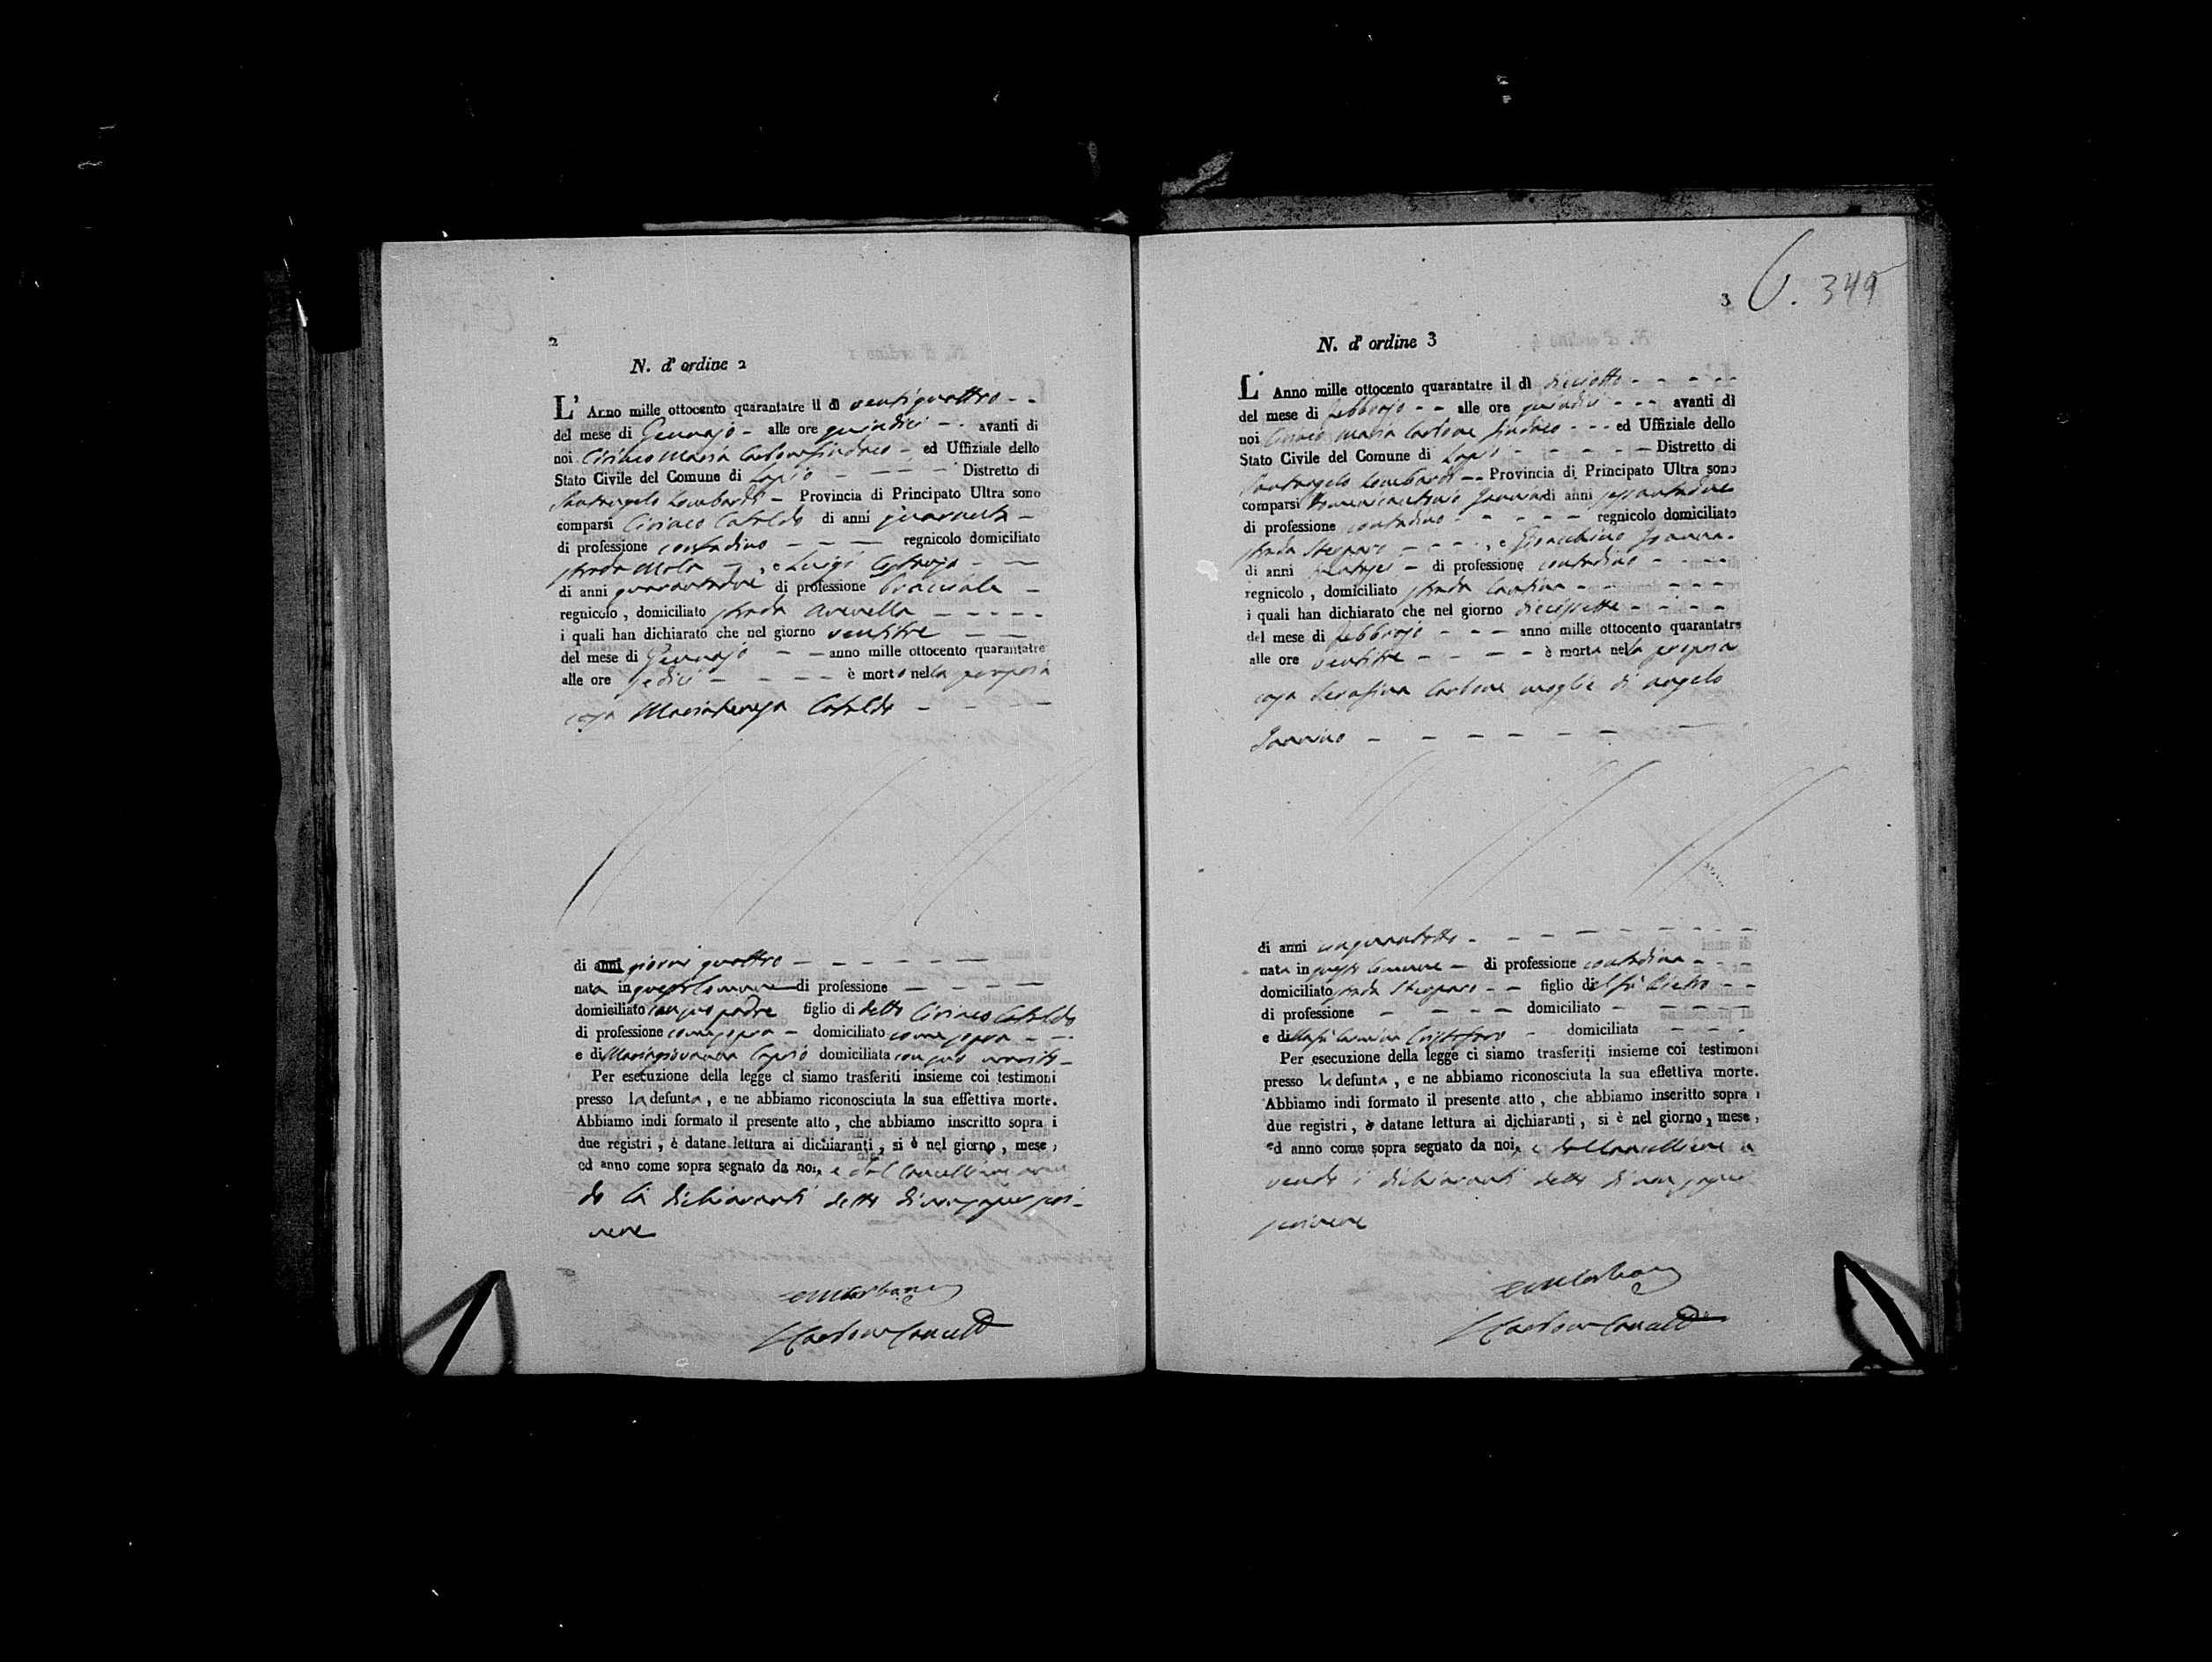 2
N. d' ordine 2
L' Anno mille ottocento quarantatre il dì ventiquattro - -
del mese di Gennajo - alle ore quindici - - avanti di
noi Ciriaco Maria Carbone Sindaco - ed Uffiziale dello
Stato Civile del Comune di Lapio - - - - Distretto di
Santangelo Lombardi - Provincia di Principato Ultra sono
comparsi Ciriaco Cataldo di anni quaranta -
di professione contadino - - - regnicolo domiciliato
strada Mola - , e Luigi - -
di anni quarantadue di professione bracciale -
regnicolo , domiciliato strada - - - - -
i quali han dichiarato che nel giorno ventitre - -
del mese di Gennajo - - anno mille ottocento quarantatre
alle ore sedici - - - - è morto nella propria
casa Mariateresa Cataldo - - -
di anni giorni quattro - - - - - -
nata in questo Comune di professione - - - -
domiciliato con suo padre figlio di detto Ciriaco Cataldo
di professione come sopra - domiciliato come sopra - -
e di Mariagiovanna Caprio domiciliata con suo marito -
Per esecuzione della legge ci siamo trasferiti insieme coi testimoni
presso la defunta , e ne abbiamo riconosciuta la sua effettiva morte.
Abbiamo indi formato il presente atto , che abbiamo inscritto sopra i
due registri , è datane lettura ai dichiaranti , si è nel giorno , mese ,
ed anno come sopra segnato da noi, e dal Cancelliere aven
do li dichiaranti detto di non saper scri-
vere
3
N. d' ordine 3
L' Anno mille ottocento quarantatre il dì diciotto - - - - -
del mese di Febbrajo - - alle ore quindici - - - avanti di
noi Ciriaco Maria Carbone Sindaco - - - ed Uffiziale dello
Stato Civile del Comune di Lapio - - - - - Distretto di
Santangelo Lombardi - - Provincia di Principato Ultra sono
comparsi Domenicantonio di anni sessantadue
di professione contadino - - - - - regnicolo domiciliato
strada - - - - , e Gioacchino
di anni - di professione contadino - - - - -
regnicolo , domiciliato strada - - - - -
i quali han dichiarato che nel giorno diecisette - - - -
del mese di Febbrajo - - - anno mille ottocento quarantatre
alle ore ventitre - - - - è morta nella propria
casa Serafina Carbone moglie di Angelo
- - - - - - - -
di anni cinquantotto - - - - - - - - -
nata in questo Comune - di professione contadina - - -
domiciliato strada - - figlio del fu Pietro - -
di professione - - - - domiciliato - - - - -
e della fu Cristofaro - domiciliata - - -
Per esecuzione della legge ci siamo trasferiti insieme coi testimoni
presso la defunta , e ne abbiamo riconosciuta la sua effettiva morte.
Abbiamo indi formato il presente atto , che abbiamo inscritto sopra i
due registri , è datane lettura ai dichiaranti , si è nel giorno , mese ,
ed anno come sopra segnato da noi, e dal Cancelliere a
vendo i dichiaranti detto di non sapere
scrivere